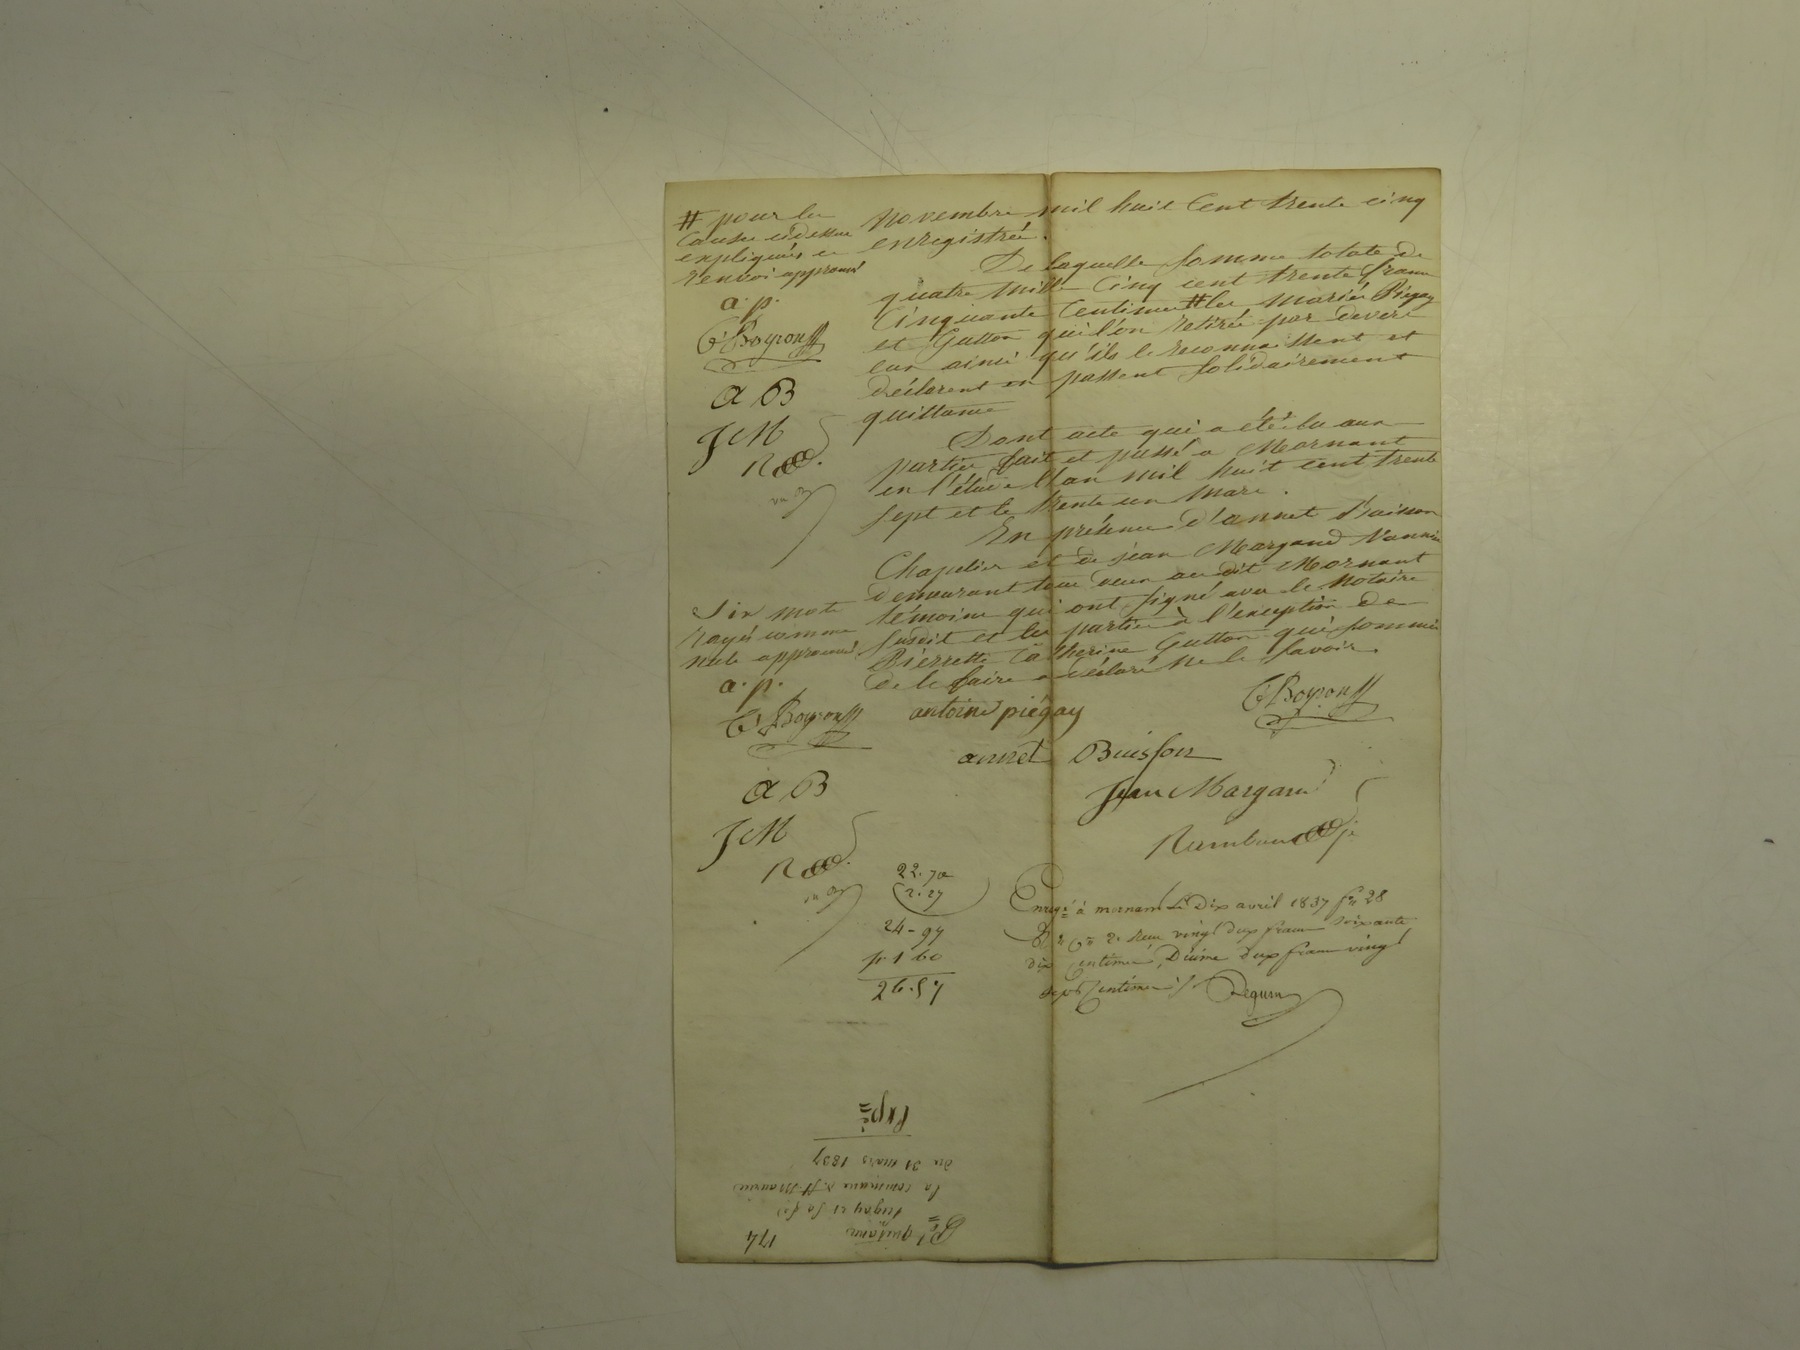 novembre mil huit Cent trente cinq
enregistrée.
De laquelle somme totale de
quatre mille Cinq cent trente francs
Cinquante Centimes # les mariés Piégay
et Gutton qui l'on retirée par devers
eux ainsi qu'ils le reconnaissent et
déclarent en passent solidairement
quittance
Dont acte qui a été lu aux
parties fait et passé a Mornant
en l'étude l'an mil huit cent trente
sept et le trente un mars.
En présence d'annet Buisson
Chapelier et de jean Margand Vannier
demeurant tous deux au dit Mornant
témoins qui ont signé avec le Notaire
susdit et les parties à l'exception de
Pierrette Catherine Gutton qui sommée
de le faire a déclaré ne le savoir.
# pour les
Causes cidessus
expliquées en
renvoi approuvé
a. p.
C. Boyron
A B
J M
R
Six mots
rayés comme
nuls approuvés
a. p.
C. Boyron
A B
J M
R
antoine piégay
C. Boyron
annet Buisson
Jean Margand
22.70
2.27
24-97
1 60
26.57
Enregé à mornant Le Dix avril 1837 fo 28
Ro Ce 2. Reçu vingt deux francs soixante
dix centimes, Décime deux francs vingt
sept Centimes
174
quittance
piegay et sa fe
la commune de St Maurice
du 31 mars 1837
Expé